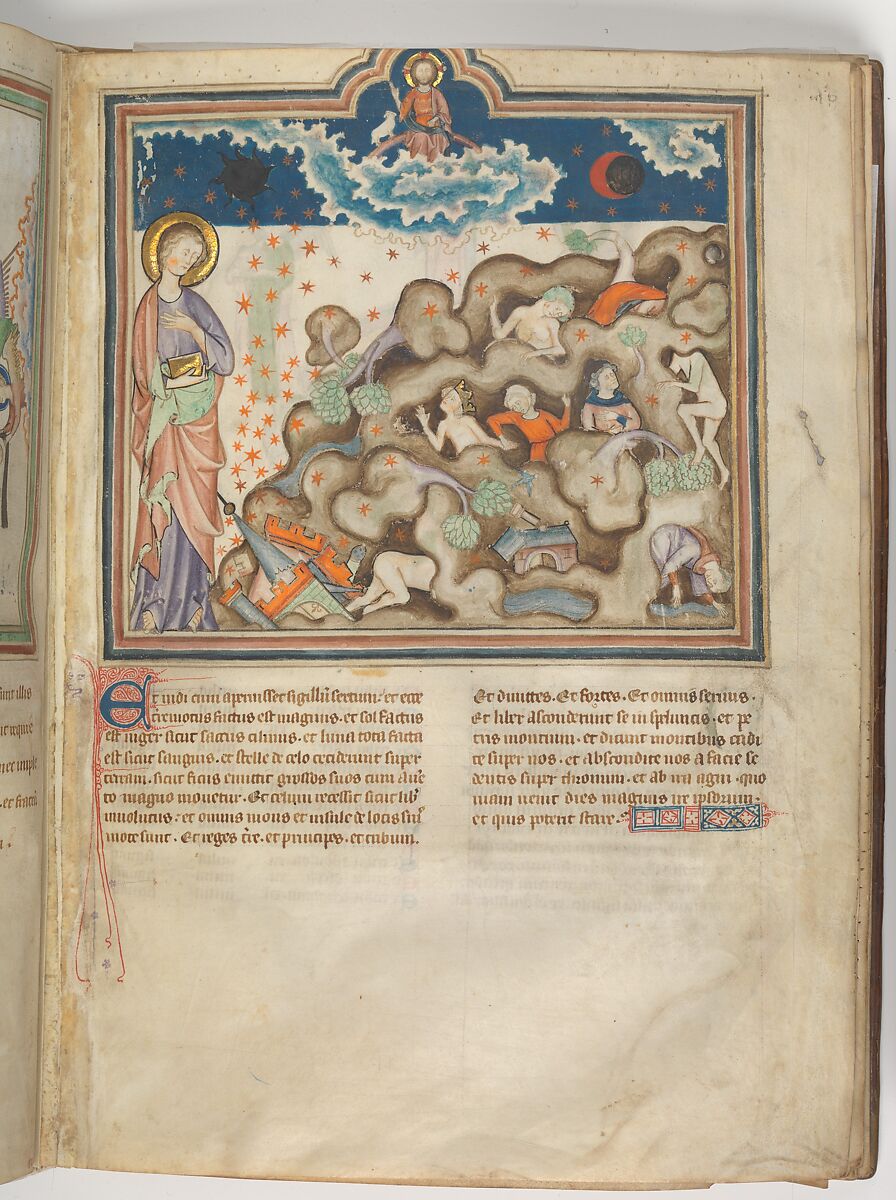 sunt illis
nec imple
Et vidi cum aperuisset sigillū sextum. et ecce
t̄remotus factus est magnus. et sol factus
est niger sicut saccus cilinus. et luna tota facta
est sicut sanguis. et stelle de celo ceciderunt super
terram. sicut ficus emittit grossos suos cum a vē
to magno movetur. Et celum recessit sicut lib̄
involutus. et omnis mons et insule de locis suis
mote sunt. Et reges t̄re. et principes. et tribuni.
Et divites. Et fortes. Et omnis servus.
et liber absconderunt se in speluncis. et pe
tris montium. et dicunt montibus cadi
te super nos. et abscondite nos a facie se
dentis super thronum. et ab ira agni. quo
niam venit dies magnus ire ipsorum.
et quis poterit stare.